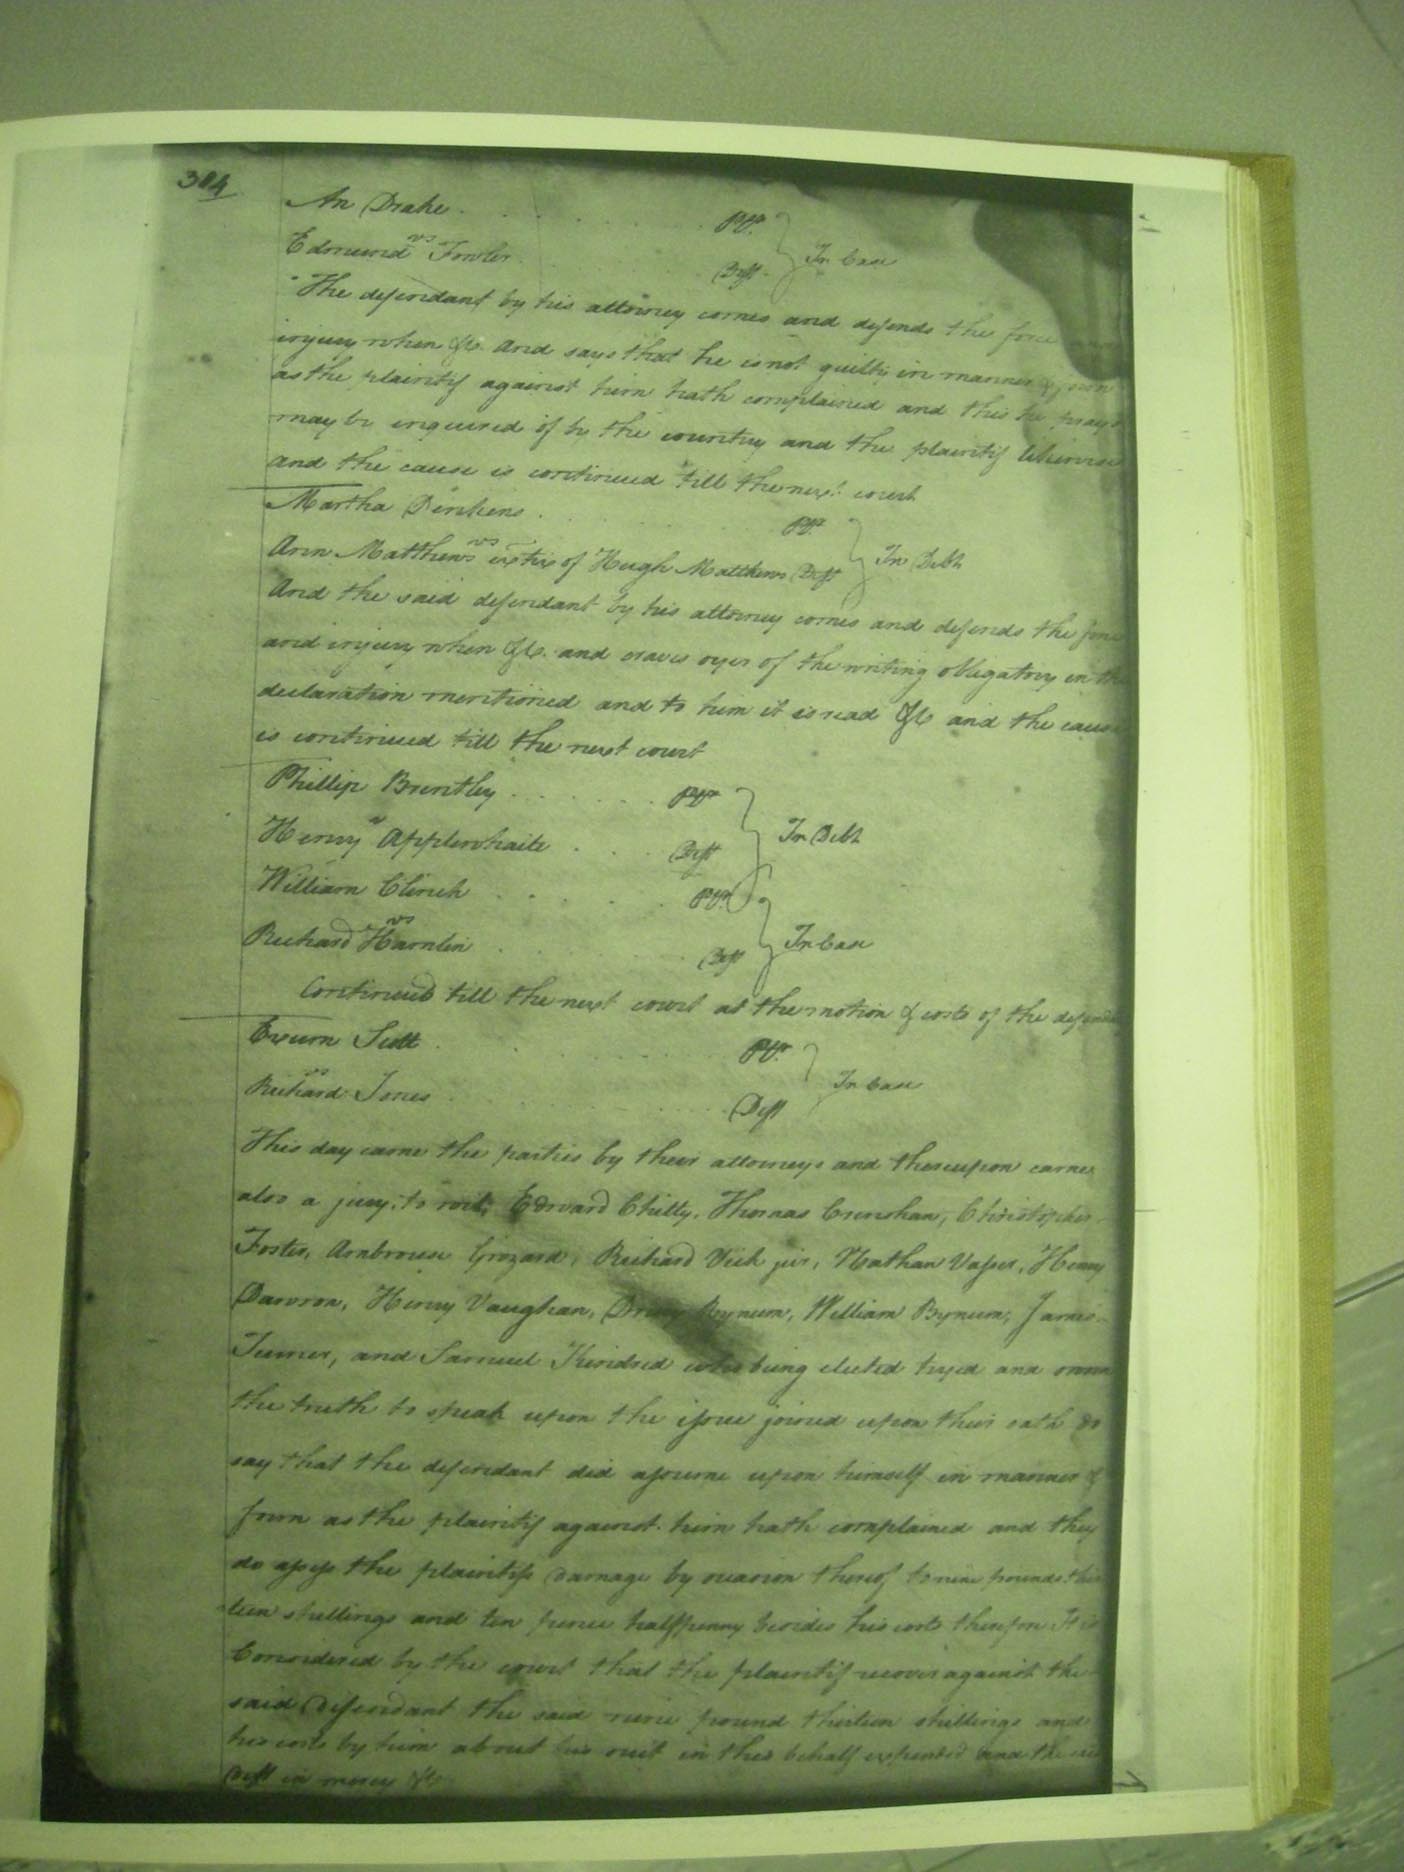 304
An Drake . . . . . . . Pltf.
vs
In Case
Edmund Fowler . . . . . Deft.
The defendant by his attorney comes and defends the force
injury when &c. and says that he is not guilty in manner & form
as the plaintif against him hath complained and this he prays
may be inquired of by the country and the plaintif likewise
and the cause is continued till the next court
Martha Dinkins . . . . . Pltf.
vs
In Debt
Ann Matthews extrix of Hugh Matthews Deft
And the said defendant by his attorney comes and defends the force
and injury when &c. and craves oyer of the writing obligatory in the
declaration mentioned and to him it is read &c and the cause
is continued till the next court
Phillip Brantley . . . . . . Pltf
vs
In Debt
Henry Applewhaite . . . . Deft
William Clinch . . . . . Pltf.
vs
In Case
Richard Hamlin . . . . . Deft
Continued till the next court at the motion & costs of the defendant
Exum Scott . . . . . . Pltf.
vs
In Case
Richard Jones . . . . . . Deft
This day came the parties by their attorneys and thereupon came
also a jury, to wit, Edward Chitty, Thomas Crenshaw, Christopher
Foster, Ambrouse Grizard, Richard Vick jur, Nathan Vasser, Henry
Dawson, Henry Vaughan, Drury Bynum, William Bynum, James
Turner, and Samuel Kindred who being elected tryed and sworn
the truth to speak upon the issue joined upon their oath do
say that the defendant did assume upon himself in manner &
form as the plaintif against him hath complained and they
do assess the plaintifs damage by occasion thereof to nine pounds thir
teen shillings and ten pence halfpenny besides his costs therefore It is
Considered by the court that the plaintif recover against the
said Defendant the said nine pound thirteen shillings and
his costs by him about his suit in this behalf expended and the
Deft in mercy &c